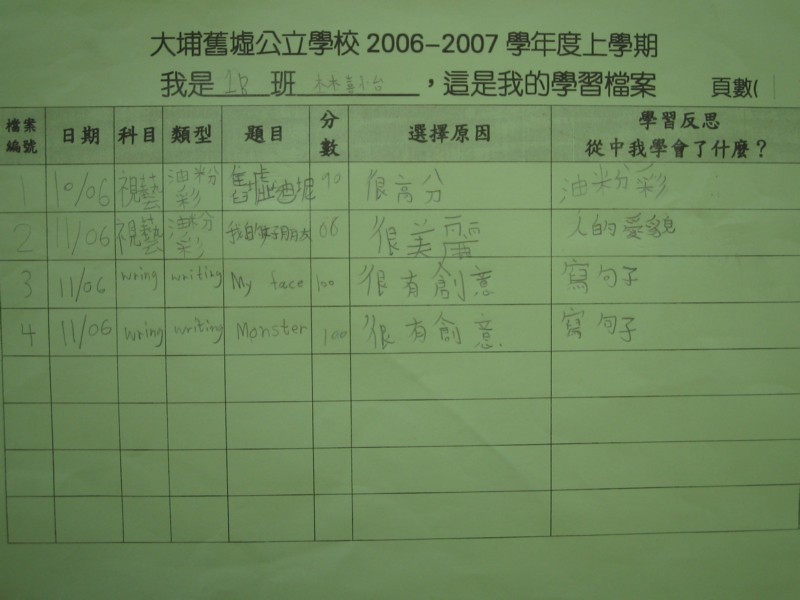 大埔舊墟公立學校 2006-2007 學年度上學期
我是 1B 班 ，這是我的學習檔案 頁數( 1
檔案編號 日期 科目 類型 題目 分數 選擇原因 學習反思 從中我學會了什麼？
1 10/06 視藝 油粉彩 舊墟 90 很高分 油粉彩
2 11/06 視藝 油粉彩 我的好朋友 很美麗 人的愛貌
3 11/06 wring writing My face 100 很有創意 寫句子
4 11/06 wring writing Monster 100 很有創意 寫句子